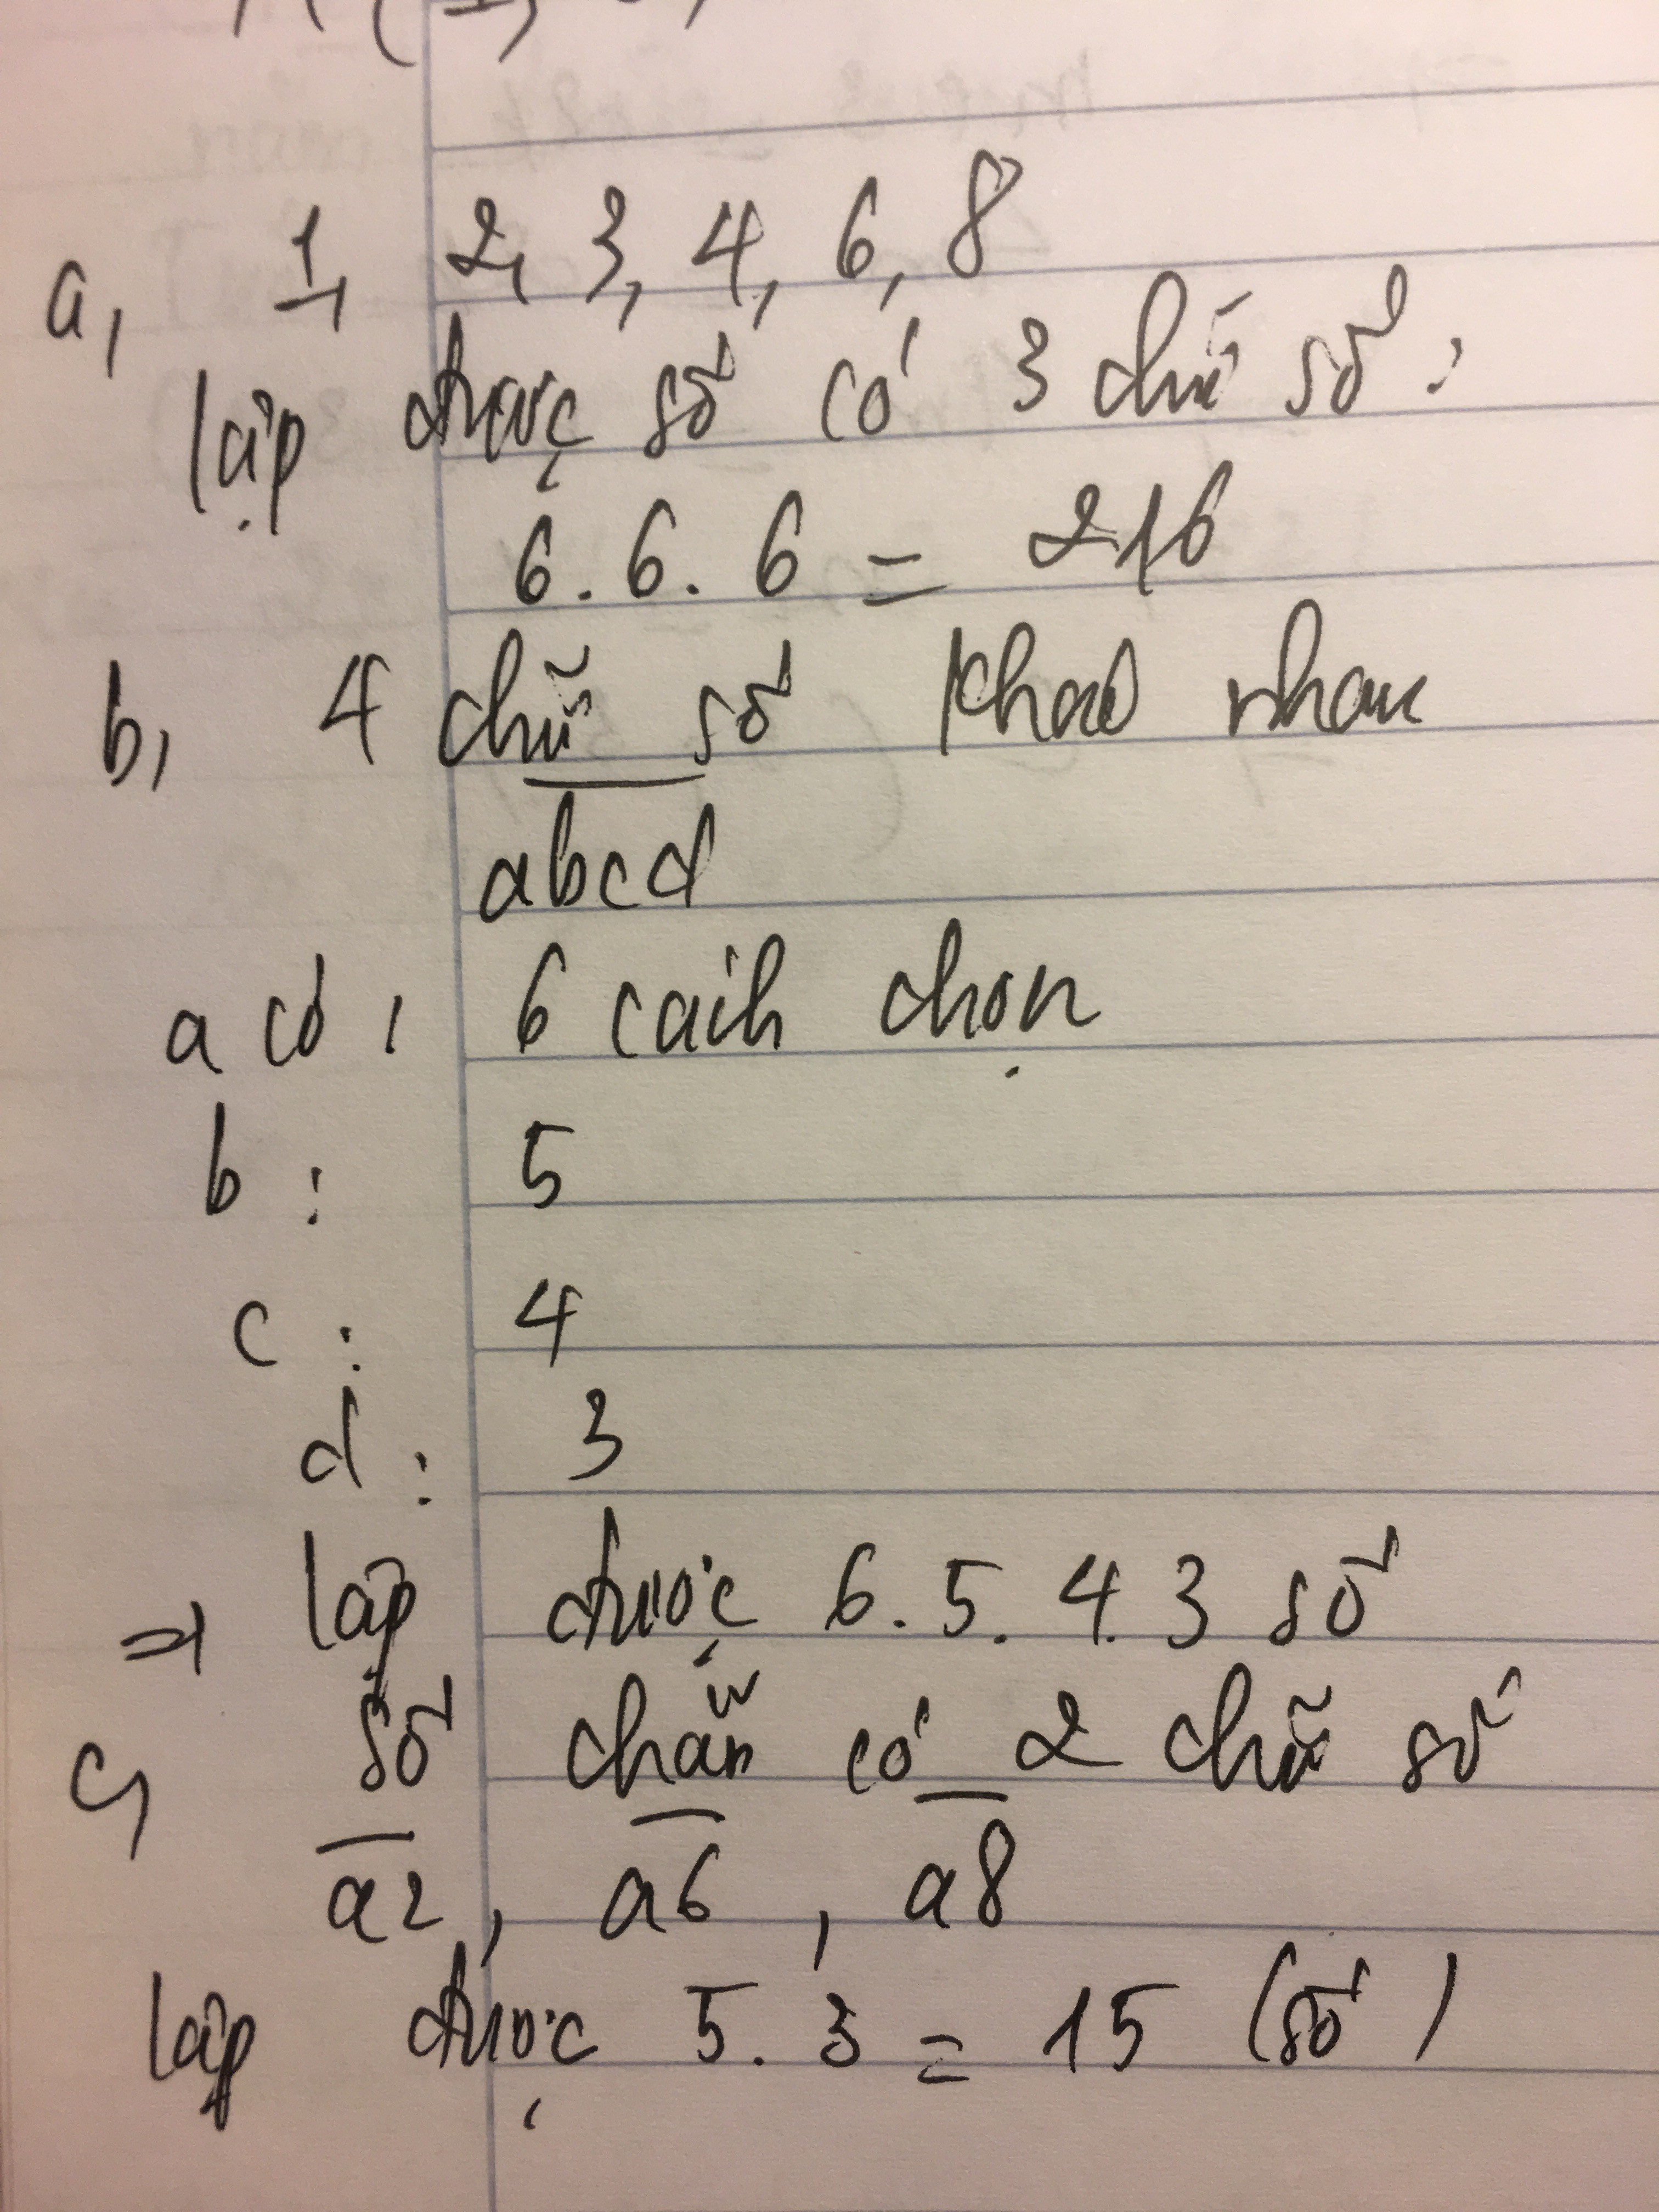 a, 1, 2, 3, 4, 6, 8
lập được số có 3 chữ số:
6.6.6 = 216
b, 4 chữ số khác nhau
abcd
a có: 6 cách chọn
b: 5
c: 4
d: 3
⇒ lập được 6.5.4.3 số
c, số chẵn có 2 chữ số
a2, a6, a8
lập được 5.3 = 15 (số)